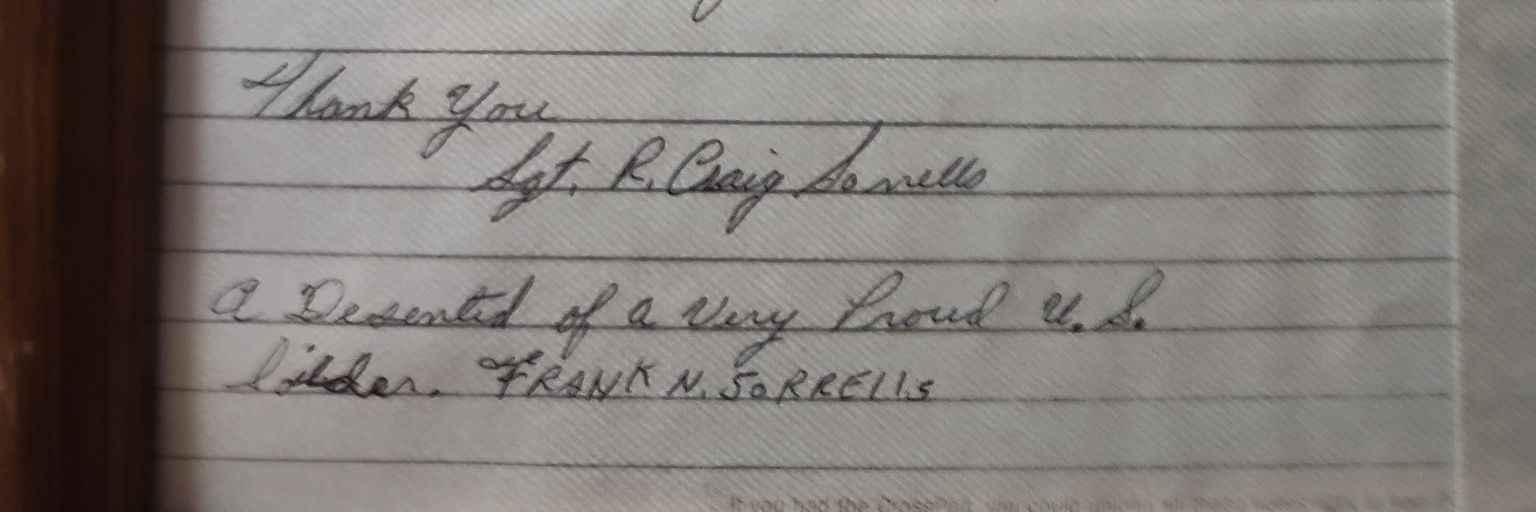 Thank You
Sgt. R. Craig Sorrells
A Desented of a Very Proud U.S.
FRANK N. SORRELLS
If you had the CrossPad, you could